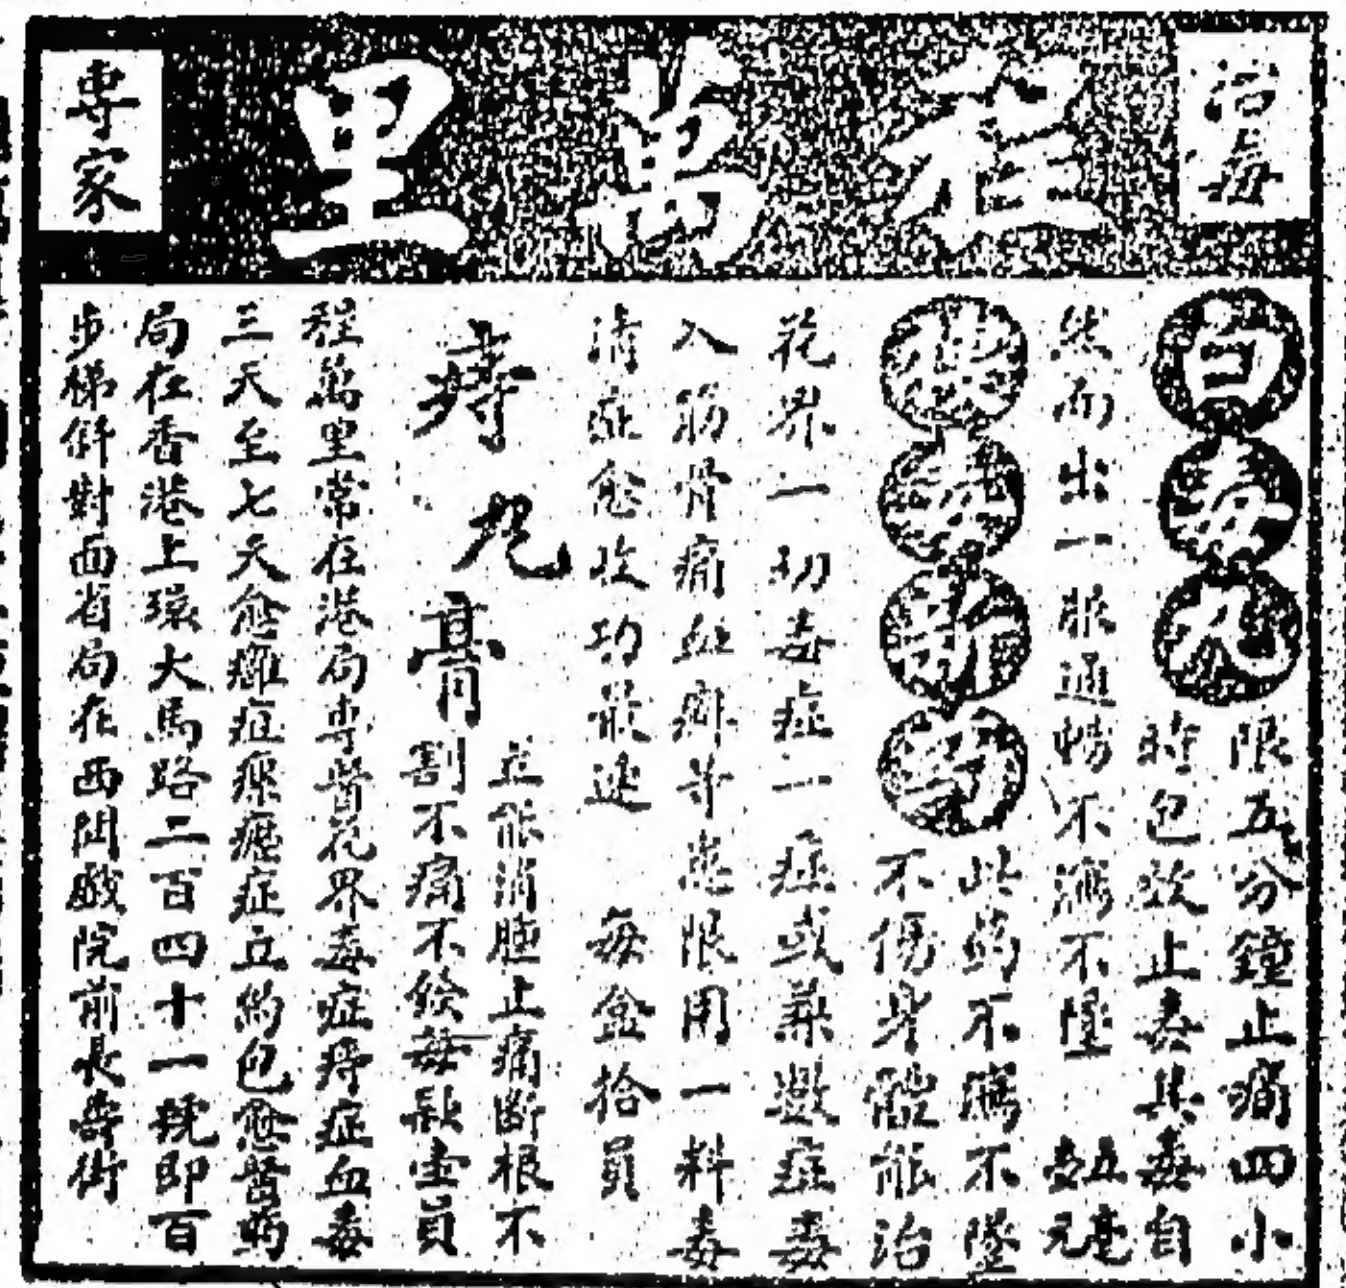 治毒
程萬里
專家
白毒丸
限五分鐘止痛四小
時包欬止毒其毒自
然而出一服通暢不瀉不墜
壹元五毫
此药不瀉不墜
不傷身體能治
花界一切毒症一症或兼數症毒
入筋骨痛血癬等患限用一料毒
清症愈收功最速 每盒拾員
痔丸膏
立能消腫止痛斷根不
割不痛不 每 壹員
程萬里常在港局專醫花界毒症痔症血毒
三天至七天愈癰疽瘰癧症立約包愈醫药
局在香港上環大馬路二百四十一號即百
步梯斜對面省局在西關戲院前長壽街